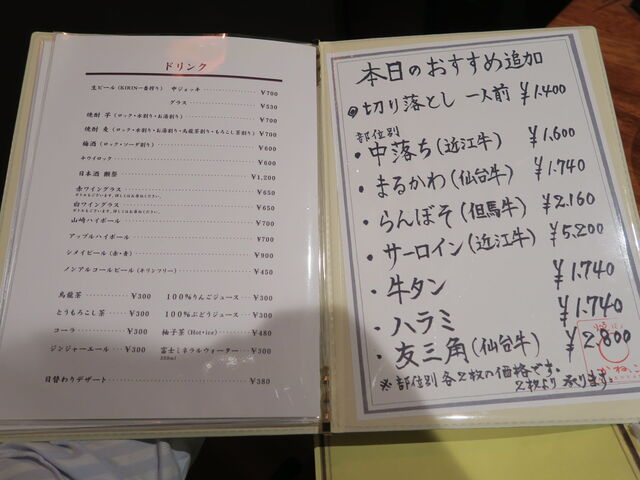 ドリンク
生ビール(KIRIN一番搾り) 中ジョッキ ¥700
グラス ¥530
焼酎 芋(ロック・水割り・お湯割り) ¥700
焼酎 麦(ロック・水割り・お湯割り・烏龍茶割り・もろこし茶割り) ¥700
梅酒(ロック・ソーダ割り) ¥600
キウイロック ¥600
日本酒 獺祭 ¥1,200
赤ワイングラス ¥650
ボトルもございます。詳しくはお尋ねください。
白ワイングラス ¥650
ボトルもございます。詳しくはお尋ねください。
山崎ハイボール ¥700
アップルハイボール ¥700
シメイビール(赤・青) ¥900
ノンアルコールビール(キリンフリー) ¥450
烏龍茶 ¥300 100%りんごジュース ¥300
とうもろこし茶 ¥300 100%ぶどうジュース ¥300
コーラ ¥300 柚子茶(Hot・ice) ¥480
ジンジャーエール ¥300 富士ミネラルウォーター ¥300
日替わりデザート ¥380
本日のおすすめ追加
切り落とし 一人前 ¥1.400
部位別
・中落ち(近江牛) ¥1.600
・まるかわ(仙台牛) ¥1.740
・らんぼそ(但馬牛) ¥2.160
・サーロイン(近江牛) ¥5.200
・牛タン ¥1.740
・ハラミ ¥1.740
・友三角(仙台牛) ¥2.800
※部位別 各2枚の価格です。
2枚より 承ります。